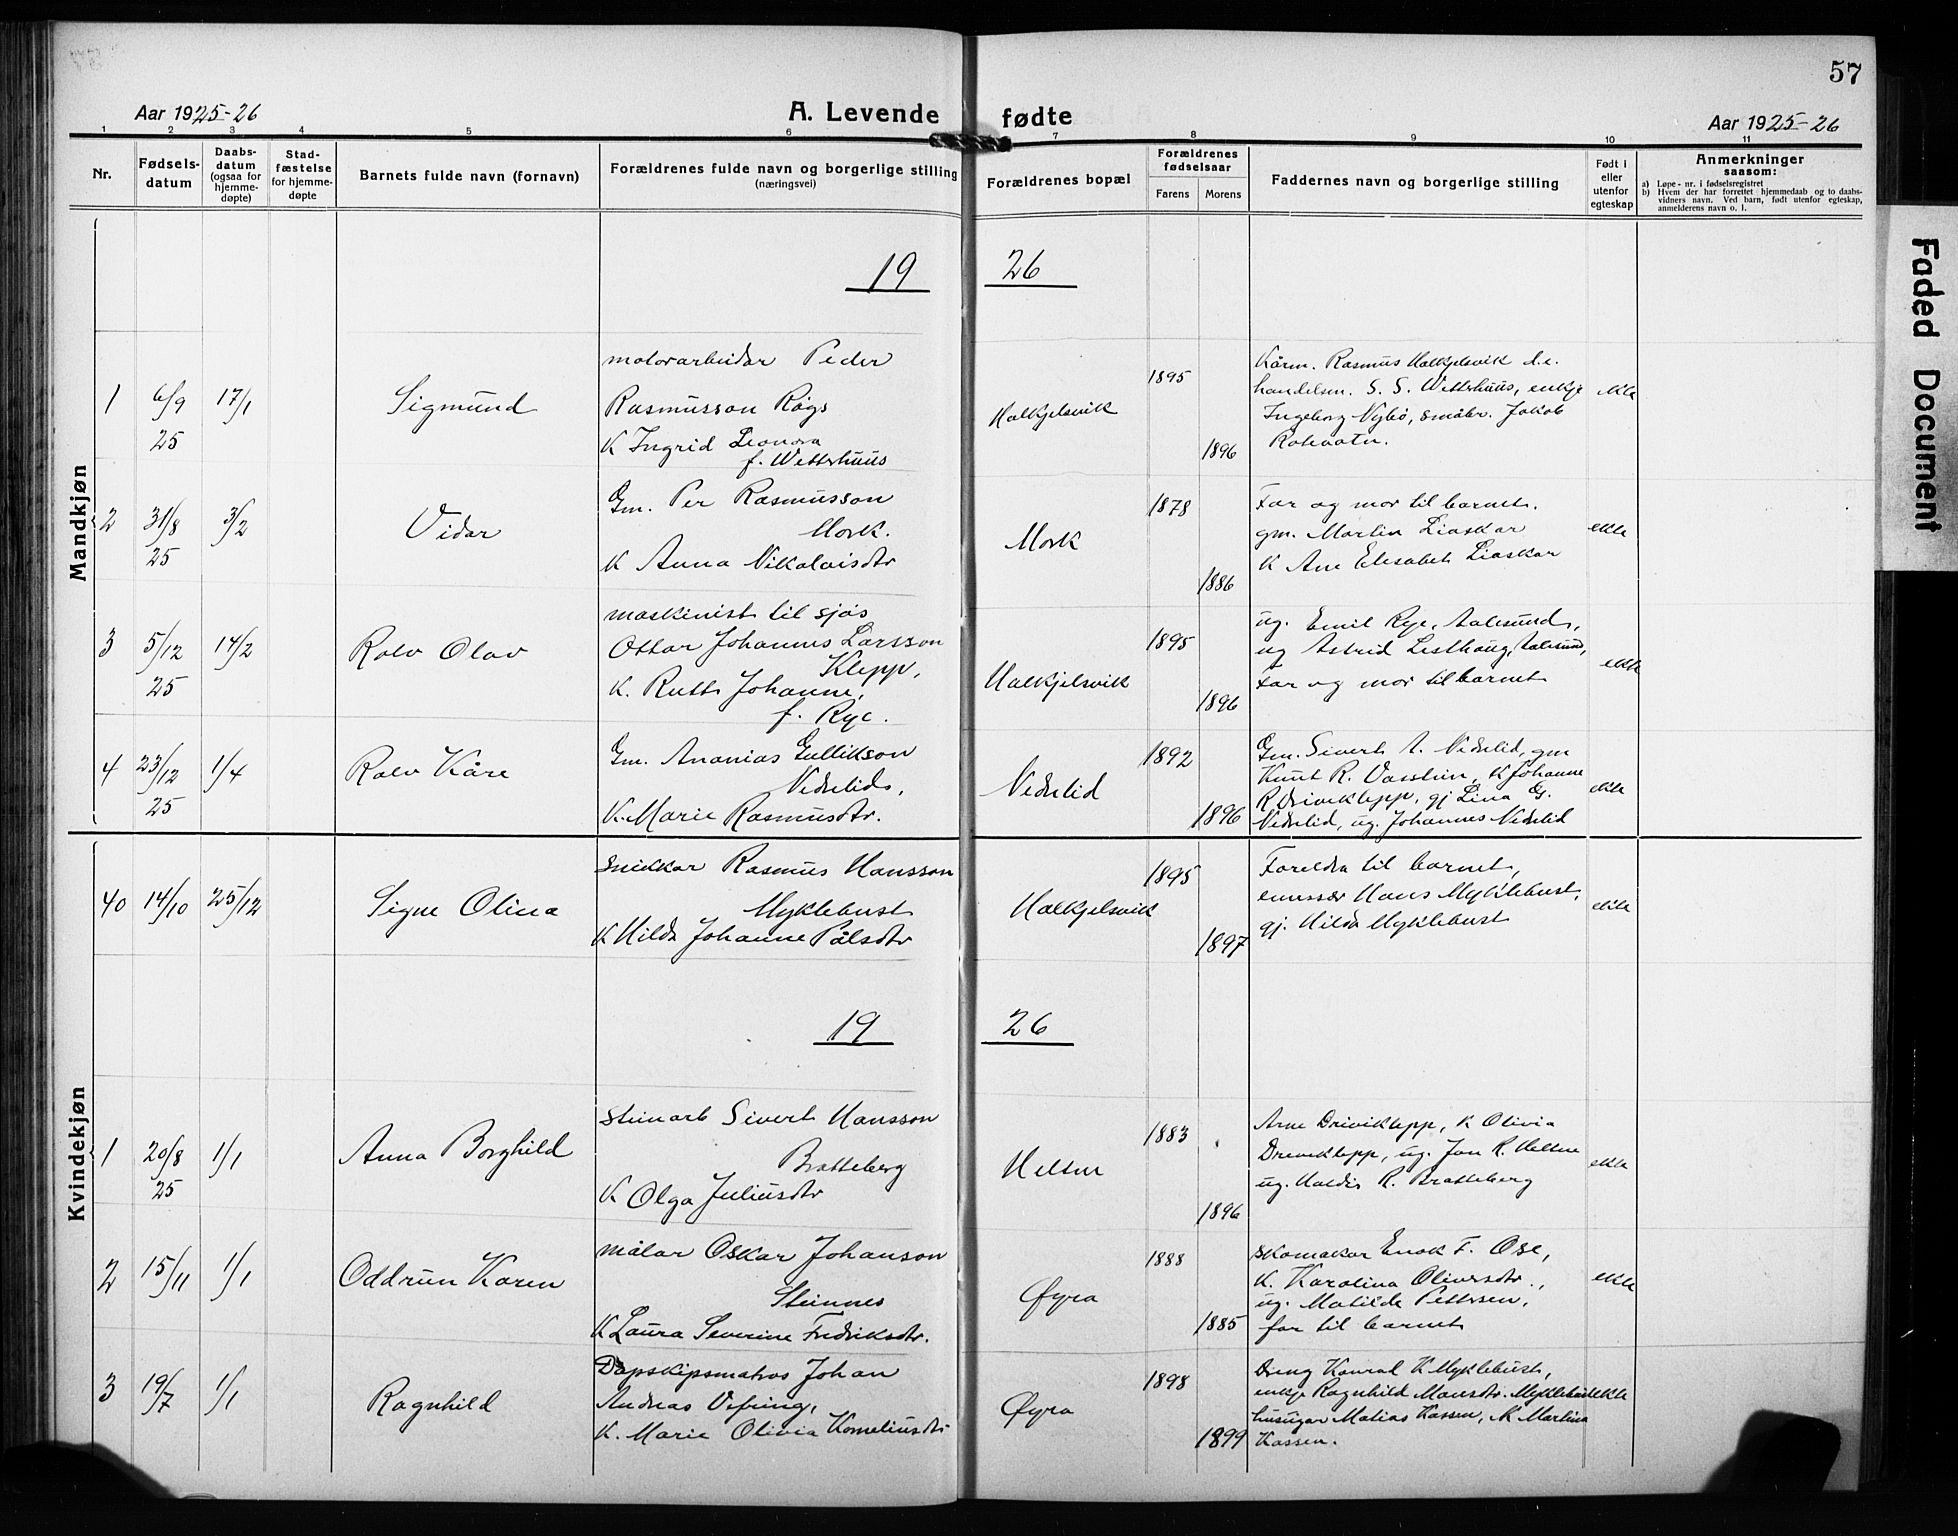 57
Aar 1925-26
A. Levende fødte
Aar 1925-26
1 2 3 4 5 6 7 8 9 10 11
Nr.
Fødsels-
datum
Daabs-
datum
(ogsaa for
hjemme-
døpte)
Stad-
fæstelse
for hjemme-
døpte
Barnets fulde navn (fornavn)
Forældrenes fulde navn og borgerlige stilling
(næringsvei)
Forældrenes bopæl
Forældrenes
fødselsaar
Farens Morens
Faddernes navn og borgerlige stilling
Født i
eller
utenfor
egteskap
Anmerkninger
saasom:
a) Løpe - nr. i fødselsregistret
b) Hvem der har forrettet hjemmedaab og to daabs-
vidners navn. Ved barn, født utenfor egteskap,
anmelderens navn o. l.
Mandkjøn
19 26
1
6/9
25
17/1
Sigmund
motorarbeidar Peder
Rasmusson Røgs
K Ingrid Leonora
f. Wetterhuus
Halkjelsvik
1895
1896
Rasmus Halkjelsvik d.e.
handelsm. S. S. Wetterhuus, enkje
Ingeborg Nybø, småbr. Jakob
Rotevatn.
ekte
2
31/8
25
3/2
Vidar
Gm. Per Rasmusson
Mork.
K Anna Nikolaisdtr
Mork
1878
1886
Far og mor til barnet.
gm. Martin Liaskar
K Ane Elisabet Liaskar
ekte
3
5/12
25
14/2
Rolv Olav
maskinist til sjøs
Ottar Johannes Larsson
Klepp,
K. Ruth Johanne,
f. Rye.
Halkjelsvik
1895
1896
ug. Emil Rye, Aalesund,
ug Astrid Lesthaug, Aalesund,
Far og mor til barnet
ekte
4
23/12
25
1/4
Rolv Kåre
Gm. Ananias Gullikson
Nedrelid,
K. Marie Rasmusdtr.
Nedrelid
1892
1896
Gm. Sivert A. Nedrelid, gm
Knut R. Vasslien, K Johanne
R Driveklepp, gj Lina G.
Nedrelid, ug. Johannes Nedrelid
ekte
Kvindekjøn
40
14/10
25/12
Signe Olina
snikkar Rasmus Hansson
Myklebust
K Hilda Johanne Pålsdtr
Halkjelsvik
1895
1897
Foreldra til barnet,
Hans Myklebust,
gj. Hilda Myklebust
ekte
19 26
1
20/8
25
1/1
Anna Borghild
steinarb Sivert Hansson
Bratteberg
K Olga Juliusdtr
Helsen
1883
1896
Arne Driveklepp, K Olivia
Driveklepp, ug. Jon R. Helsne
ug. Haldis R. Bratteberg
ekte
2
15/11
1/1
Oddrun Karen
målar Oskar Johanson
Steinnes
K Laura Severine Fredriksdtr.
Øyra
1888
1885
skomakar Enok F. Ose,
K. Karolina Oliversdtr.,
ug. Matilde Pettersen,
far til barnet
ekte
3
19/7
1/1
Ragnhild
Dampskipsmatros Johan
Andreas Vefring,
K. Marie Olivia Korneliusdtr
Øyra
1898
1899
Dreng Konral K Myklebust,
enkje Ragnhild Hansdtr. Myklebust
husugar Matias Kassen, K Martina
Kassen.
ekte
Faded Document